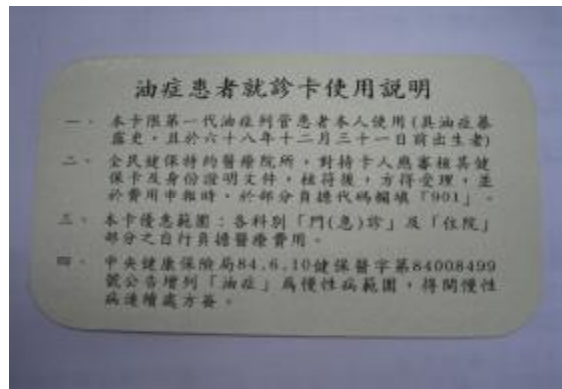 油症患者就診卡使用說明
一、本卡限第一代油症列管患者本人使用(具油症暴
露史,且於六十八年十二月三十一日前出生者)
二、全民健保特約醫療院所,對持卡人應審核其健
保卡及身份證明文件,核符後,方得受理,並
於費用申報時,於部分負擔代碼欄填「901」。
三、本卡優惠範圍:各科別「門(急)診」及「住院」
部分之自行負擔醫療費用。
四、中央健康保險局84.6.10健保醫字第84008499
號公告增列「油症」為慢性病範圍,得開慢性
病連續處方箋。